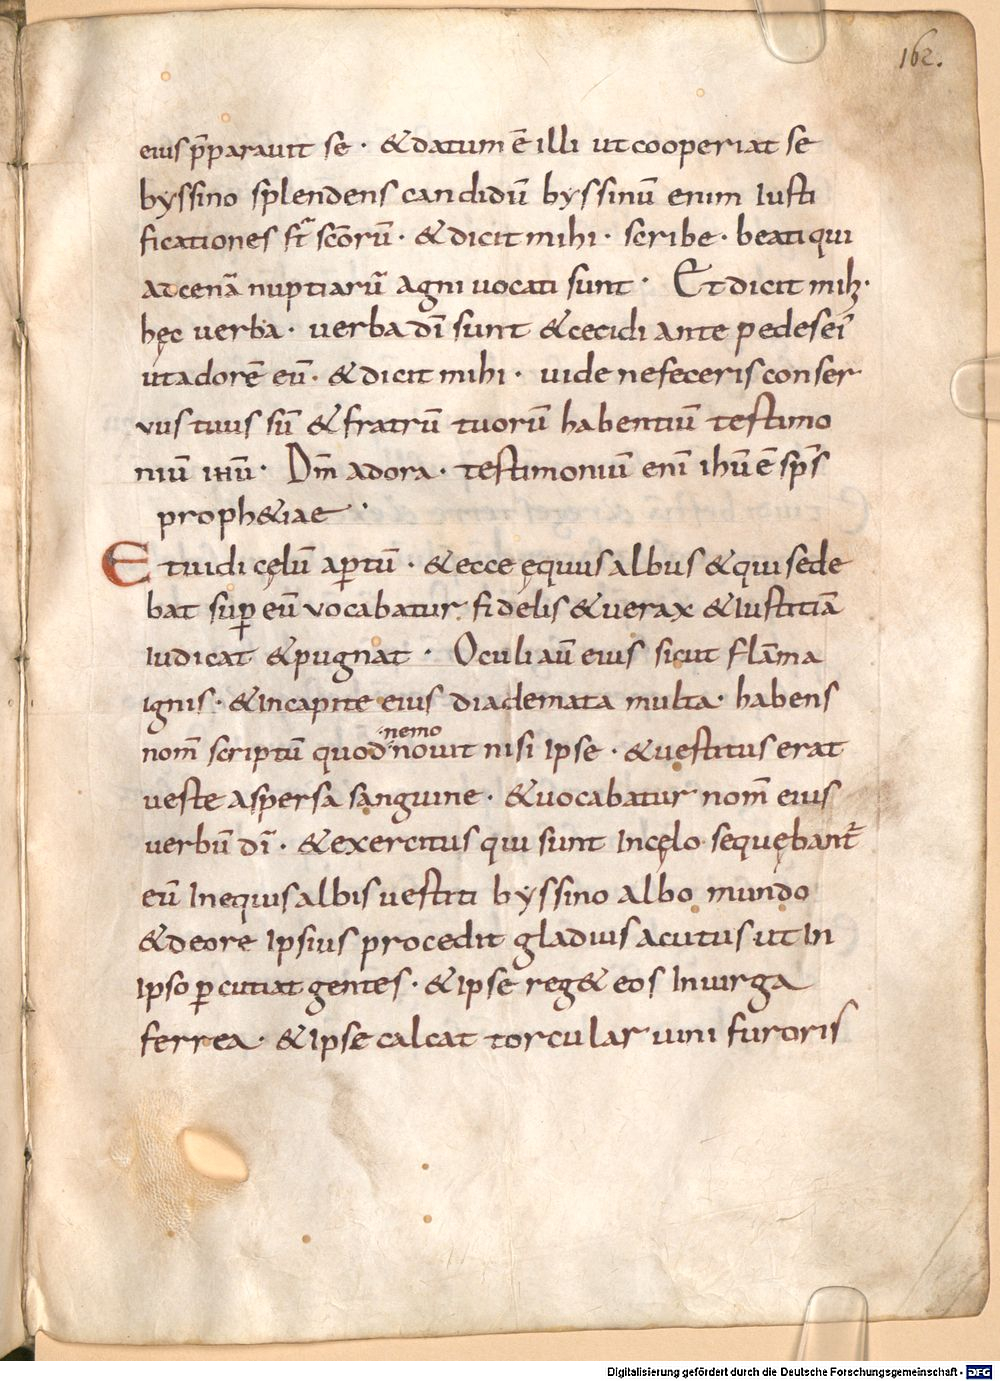 162.
eius p̄parauit se · & datum ē illi ut cooperiat se
byssino splendens candidū byssinū enim Iusti
ficationes st̄ sc̄orū · & dicit mihi · scribe · beati qui
ad cenā nuptiarū agni uocati sunt · Et dicit mih·
hęc uerba · uerba dī sunt & cecidi ante pedes ei᷒
ut adorē eū · & dicit mihi · uide ne feceris conser
vus tuus sū & fratrū tuorū habentiū testimo
niū ihū · Dm̄ adora · testimoniū enī ihū ē sp̄s
proph&iae
Et uidi cęlū ap̱tū · & ecce ęquus albus & qui sede
bat sup̱ eū vocabatur fidelis & uerax & Iustitiā
Iudicat & pugnat · Oculi aū eius sicut flāma
ignis · & In capite eius diademata multa · habens
nom̄ scriptū quod nemo nouit nisi Ipse · & uestitus erat
ueste aspersa sanguine · & uocabatur nom̄ eius
verbū dī · & exercitus qui sunt In cęlo sequębant᷑
eū In equis albis uestiti byssino albo mundo
& de ore Ipsius procedit gladius acutus ut In
Ipso p̱cutiat gentes · & Ipse reg& eos In uirga
ferrea · & Ipse calcat torcular uini furoris
Digitalisierung gefördert durch die Deutsche Forschungsgemeinschaft - DFG